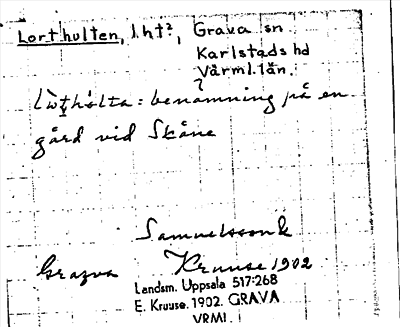 Lorthulten, l.ht?, Grava sn
Karlstads hd
Värml. län.
benämning på en
gård vid Skåne
Samuelsson k
Grava Kruuse 1902
Landsm. Uppsala 517:268
E. Kruuse. 1902. GRAVA
VRML